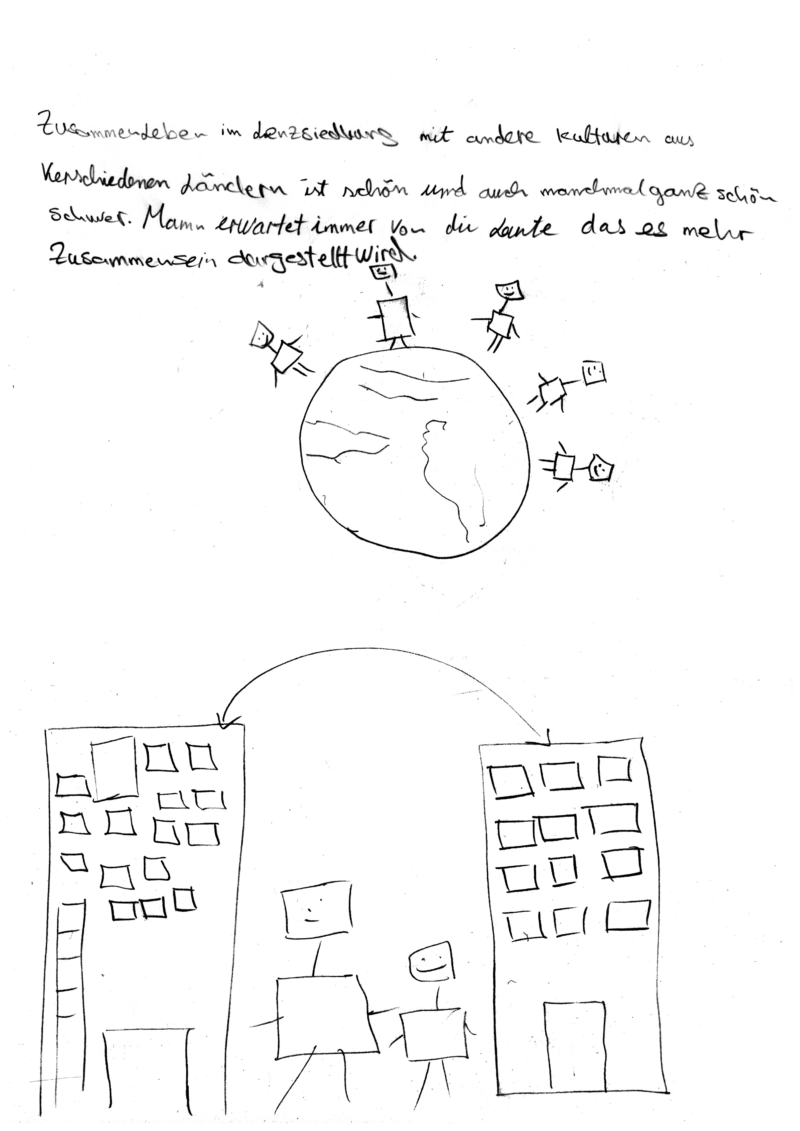 Zusammenleben im Lenzsiedlung mit andere kulturen aus
Verschiedenen Ländern ist schön und auch manchmal ganz schön
schwer. Mann erwartet immer von die Laute das es mehr
Zusammensein dargestellt wird.